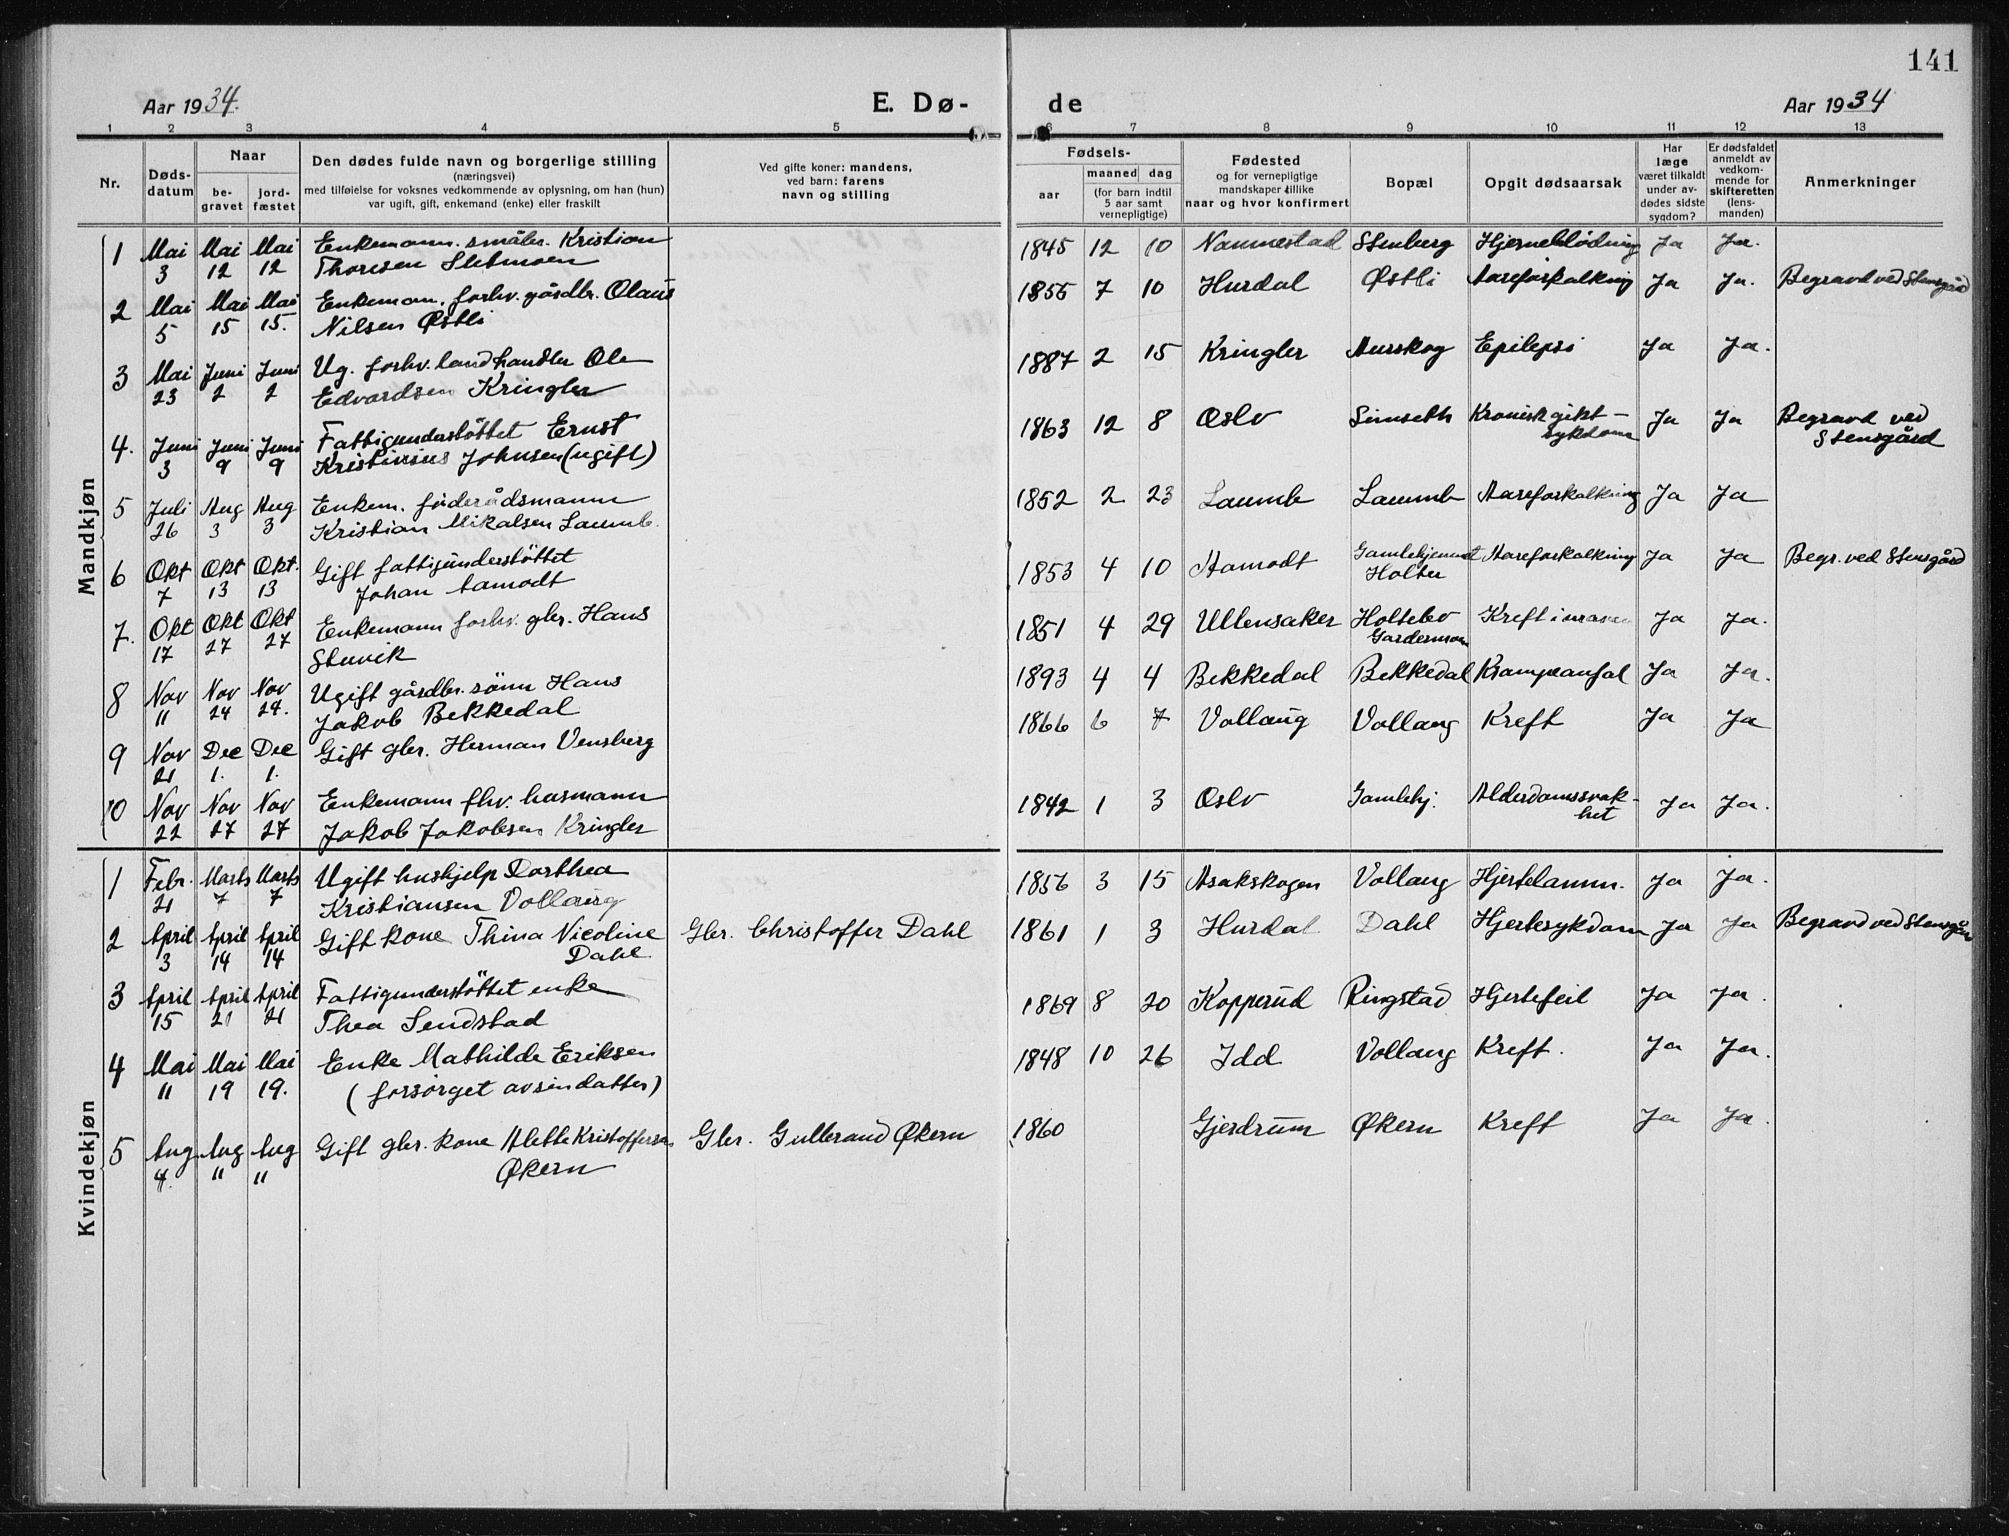 141
Aar 1934. E. Dø- de Aar 1934
1 2 3 4 5 6 7 8 9 10 11 12 13
Nr. Døds-datum Naar be-gravet jord-fæstet Den dødes fulde navn og borgerlige stilling (næringsvei) med tilføielse for voksnes vedkommende av oplysning, om han (hun) var ugift, gift, enkemand (enke) eller fraskilt Ved gifte koner: mandens, ved barn: farens navn og stilling Fødsels- aar maaned dag (for barn indtil 5 aar samt vernepligtige) Fødested og for vernepligtige mandskaper tillike naar og hvor konfirmert Bopæl Opgit dødsaarsak Har læge været tilkaldt under av-dødes sidste sygdom? Er dødsfaldet anmeldt av vedkom-mende for skifteretten (lens-manden) Anmerkninger
Mandkjøn
1 Mai Mai Mai Enkemann. småbr. Kristian 1845 12 10 Nannestad Stenberg Hjerneblødning Ja Ja.
3 12 12 Thoresen Sletmoen
2 Mai Mai Mai Enkeman. forhv. gårdbr. Olaus 1855 7 10 Hurdal Østli Aareforkalkning Ja Ja. Begravd ved Stensgård
5 15 15. Nilsen Østli
3 Mai Juni Juni Ug. forhv. landhandler Ole 1887 2 15 Kringler Aurskog Epilepsi Ja Ja.
23 2 2 Edvardsen Kringler
4. Juni Juni Juni Fattigunderstöttet Ernst 1863 12 8 Oslo Simseth Kronisk gikt- Ja Ja Begravd ved
3 9 9 Kristinius Johnsen (ugift) sykdom Stensgård
5 Juli Aug Aug Enkem. föderådsmann 1852 2 23 Laumb Laumb Aareforkalkning Ja Ja
26 3 3 Kristian Mikalsen Laumb.
6 Okt Okt Okt. Gift fattigunderstöttet 1853 4 10 Aamodt Gamlehjemmet Aareforkalkning Ja Ja Begr. ved Stensgård
7 13 13 Johan Aamodt Holter
7. Okt Okt Okt Enkemann forhv. gbr. Hans 1851 4 29 Ullensaker Holtebo Kreft i maven Ja Ja.
17 27 27 Stuvik Gardermoen
8 Nov Nov Nov Ugift gårdbr. sönn Hans 1893 4 4 Bekkedal Bekkedal Krampeanfal Ja Ja.
11 24 24. Jakob Bekkedal
9 Nov Dec Dec Gift gbr. Herman Vensberg 1866 6 7 Vollaug Vollaug Kreft Ja Ja
21 1. 1.
10 Nov Nov Nov Enkemann fhv. husmann 1842 1 3 Oslo Gamlehj. Alderdomssvak- Ja Ja.
22 27 27 Jakob Jakobsen Kringler het
Kvindekjøn
1 Febr. Marts Marts Ugift hushjelp Dorthea 1856 3 15 Asakskogen Vollaug Hjertelamm. Ja Ja.
21 7 7 Kristiansen Vollaug
2 April April April Gift kone Thina Nicoline Gbr. Christoffer Dahl 1861 1 3 Hurdal Dahl Hjertesykdom Ja Ja Begravd ved Stensgård
3 14 14 Dahl
3 April April April Fattigunderstöttet enke 1869 8 20 Kopperud Ringstad Hjertefeil Ja Ja.
15 21 21 Thea Sendstad
4 Mai Mai Mai Enke Mathilde Eriksen 1848 10 26 Idd Vollaug Kreft. Ja Ja.
11 19 19. (forsorget av sin datter)
5 Aug Aug Aug Gift gbr. kone Alette Kristoffersen Gbr. Gulbrand Økern 1860 Gjerdrum Økern Kreft Ja Ja.
4. 11 11 Økern